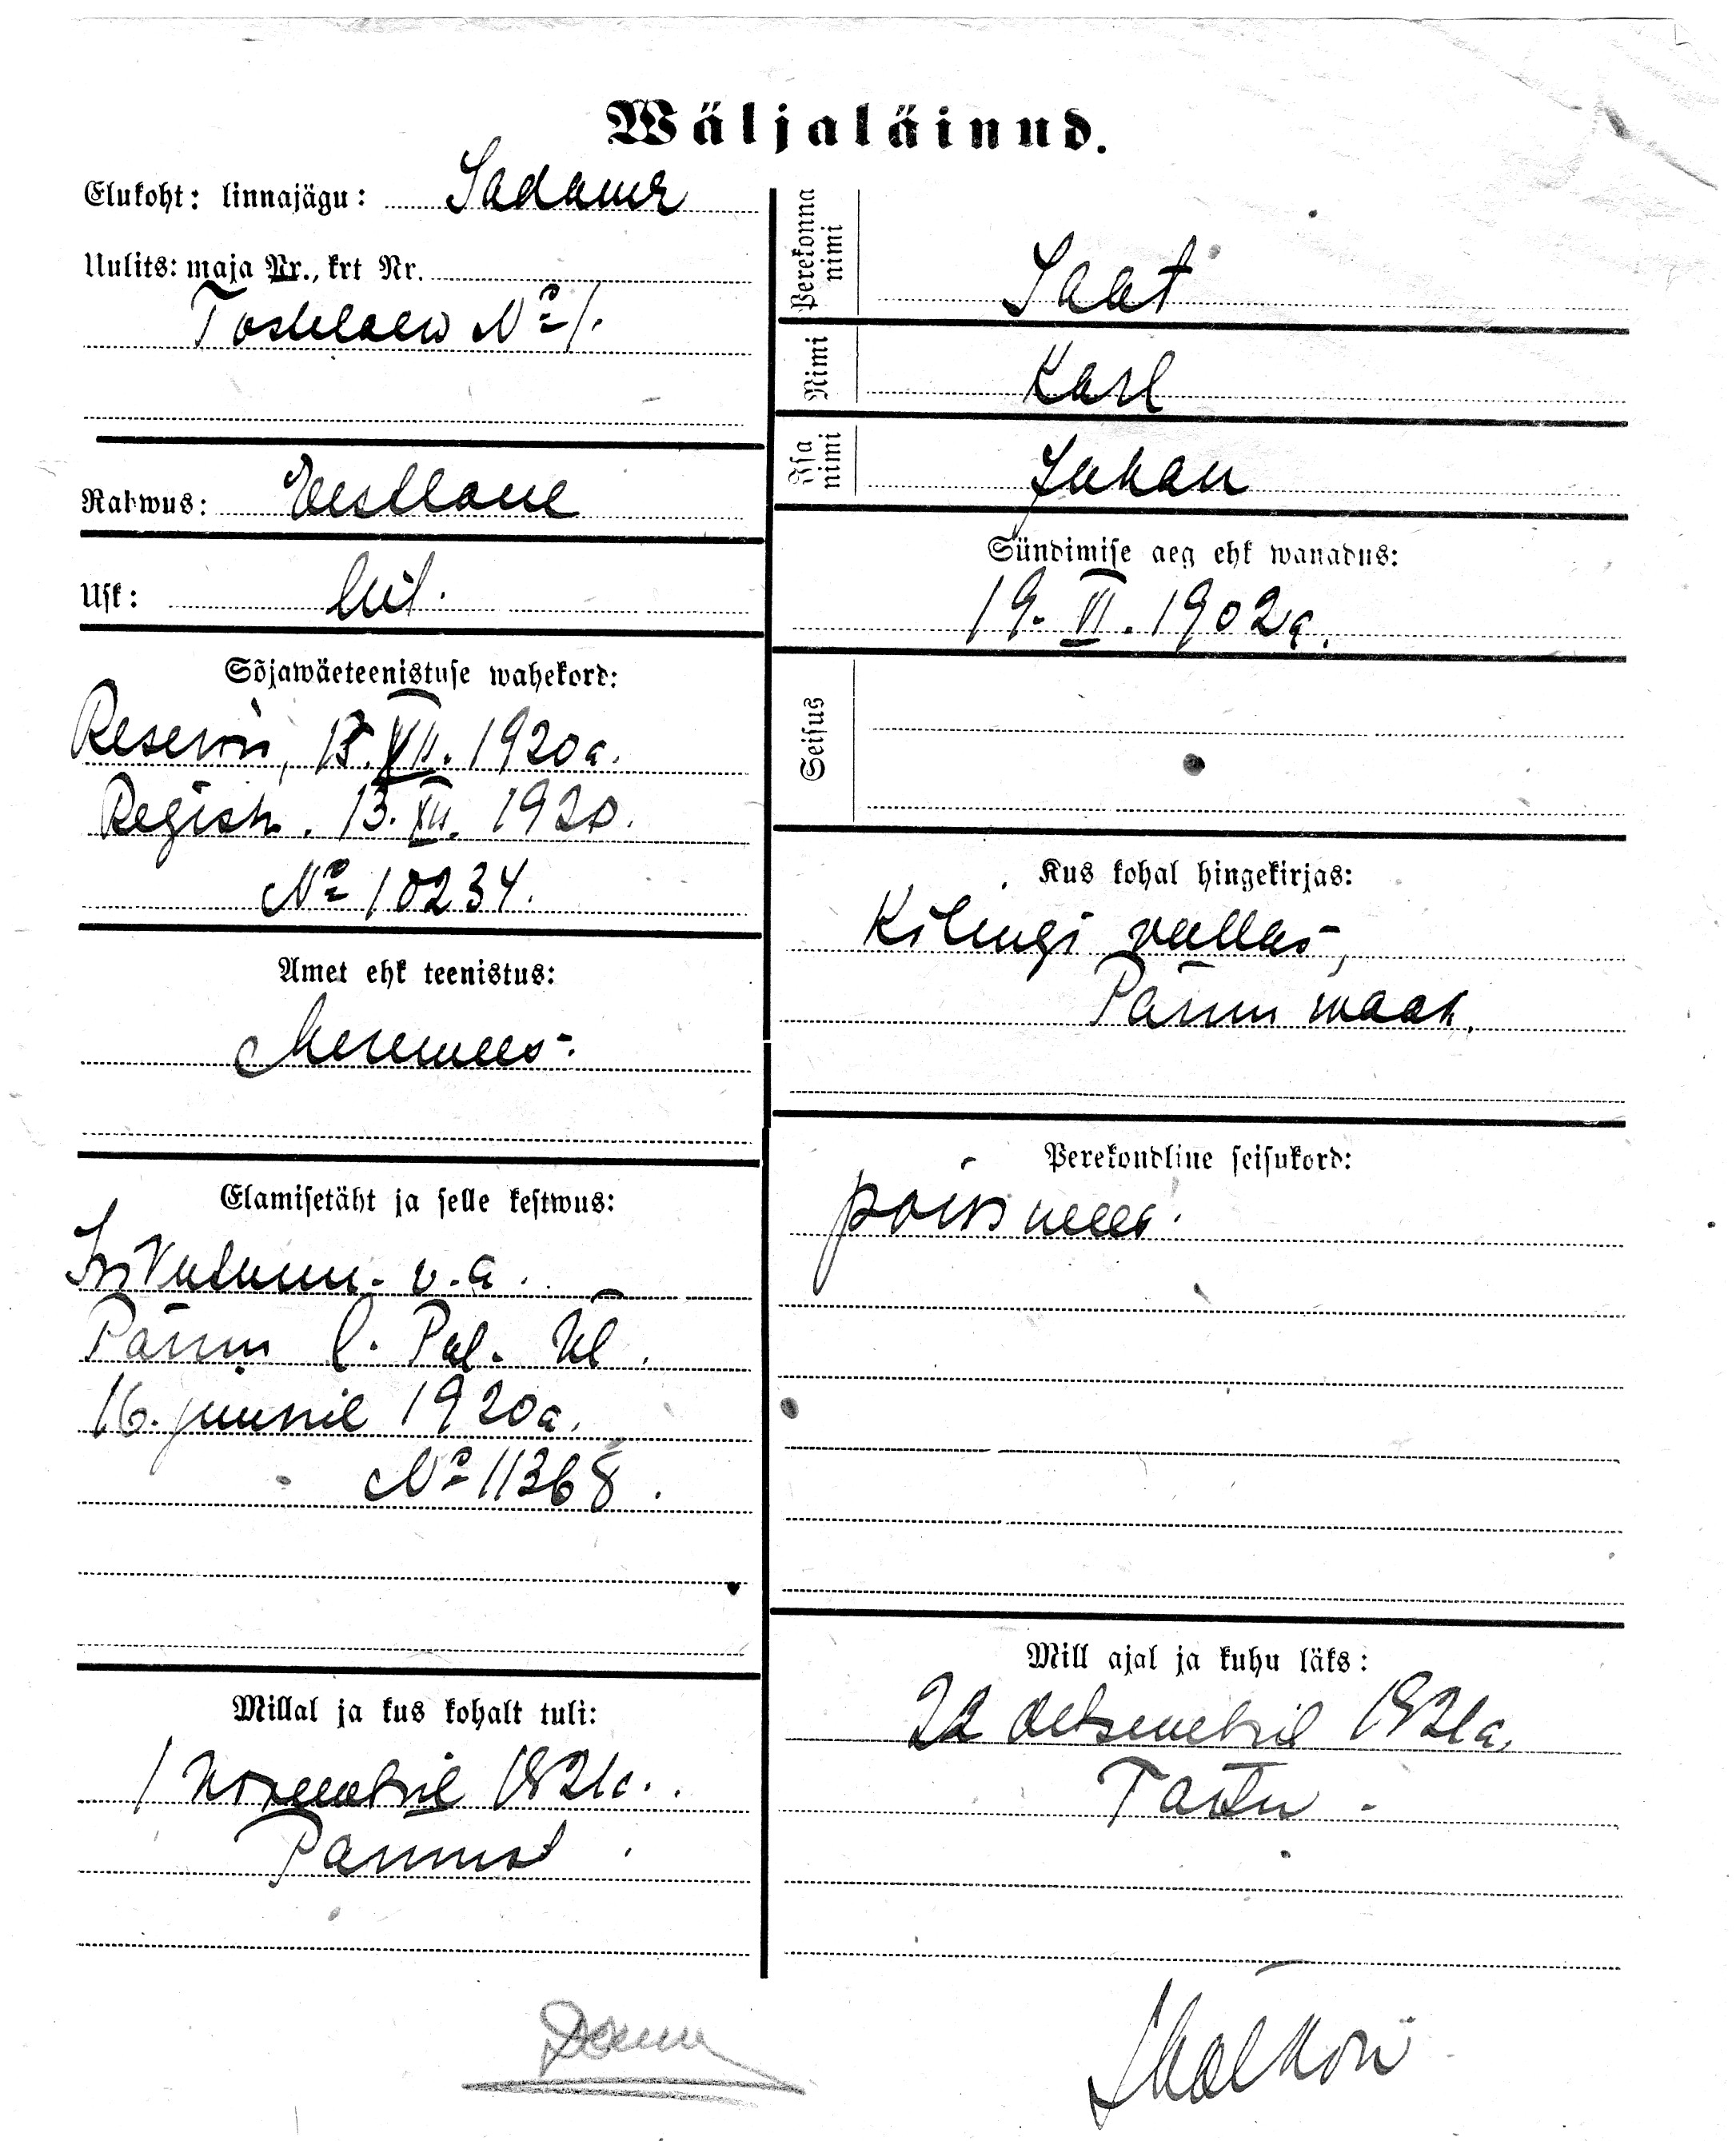 Wäljaläinud.
Elukoht: linnajägu: Sadama
Uulits: maja Nr., krt Nr.
Nº 1.
Rahwus: Eestlane
Usk: lut.
Sõjawäeteenistuse wahekord:
Reservi, 13. VII. 1920 a.
Registr. 13. XII. 1920.
Nº 10234.
Amet ehk teenistus:
Meremees.
Elamisetäht ja selle kestwus:
v. a.
Pärnu l. Pol. Ül.
16. juunil 1920 a.
Nº 11368.
Millal ja kus kohalt tuli:
1 Novembril 1921 a.
Pärnust.
Perekonna nimi Saat
Nimi Karl
Isa nimi Juhan
Sündimise aeg ehk wanadus:
19. VI. 1902 a.
Seisus
Kus kohal hingekirjas:
Kilingi vallas,
Pärnu maak.
Perekondline seisukord:
poissmees.
Mill ajal ja kuhu läks:
22 detsembril 1921 a.
Tartu.